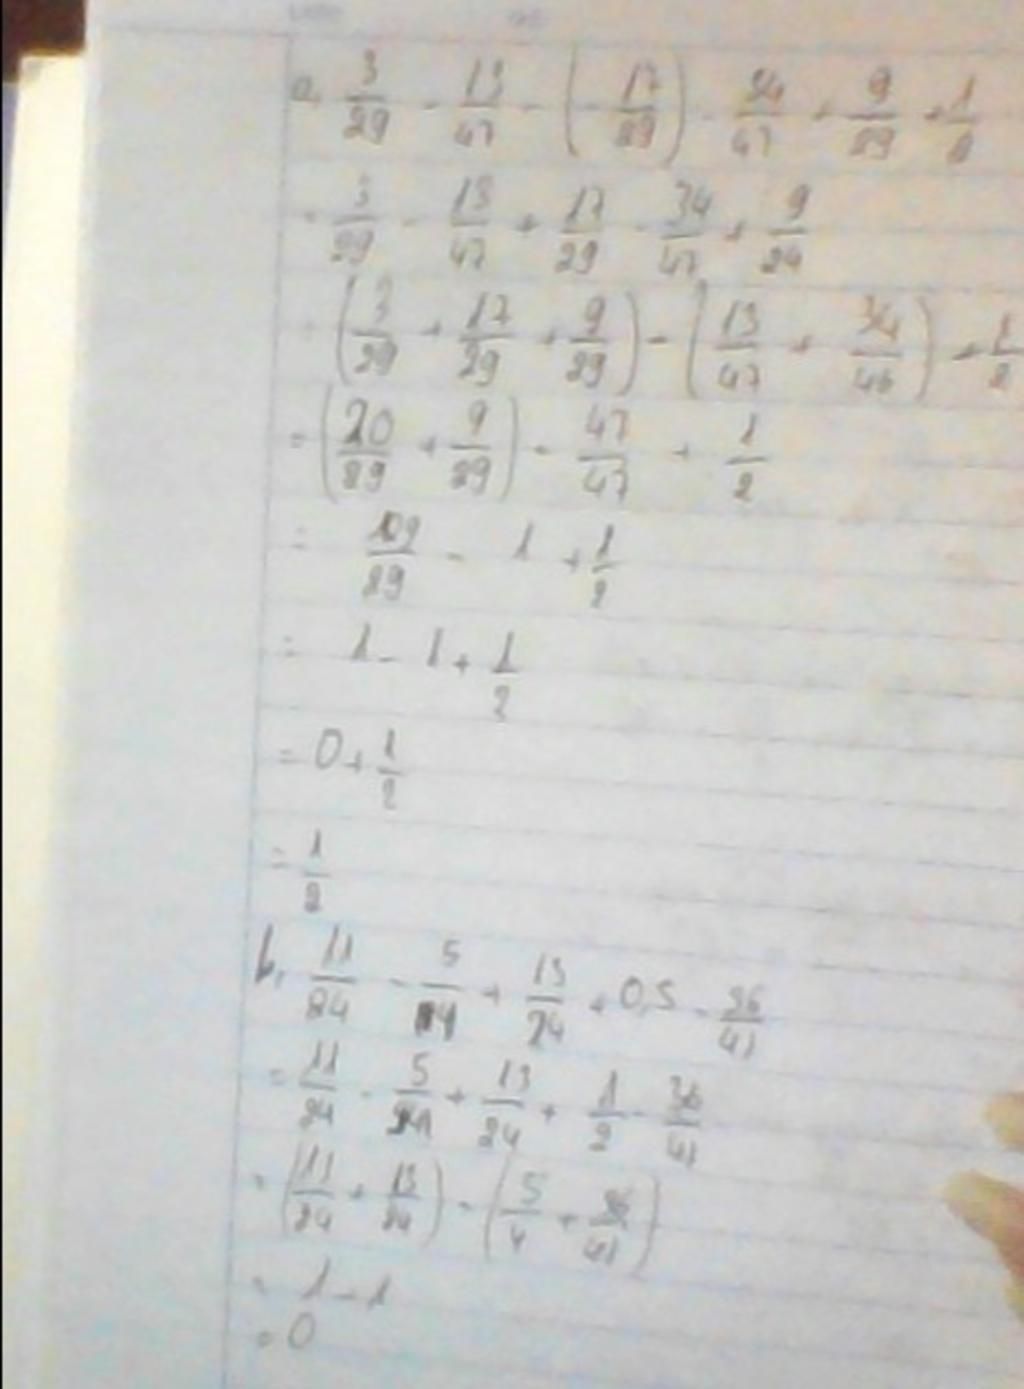 a, 3/29 - 13/47 - (-17/29) - 34/47 + 9/29 + 1/2
= 3/29 - 13/47 + 17/29 - 34/47 + 9/29
= (3/29 + 17/29 + 9/29) - (13/47 + 34/46) + 1/2
= (20/29 + 9/29) - 47/47 + 1/2
= - 1 + 1/2
= 1 - 1 + 1/2
= 0 + 1/2
= 1/2
b, 11/24 - + 13/24 + 0,5 - 36/41
= 11/24 - + 13/24 + 1/2 - 36/41
= (11/24 + 13/24) - (5/4 + 36/41)
= 1 - 1
= 0